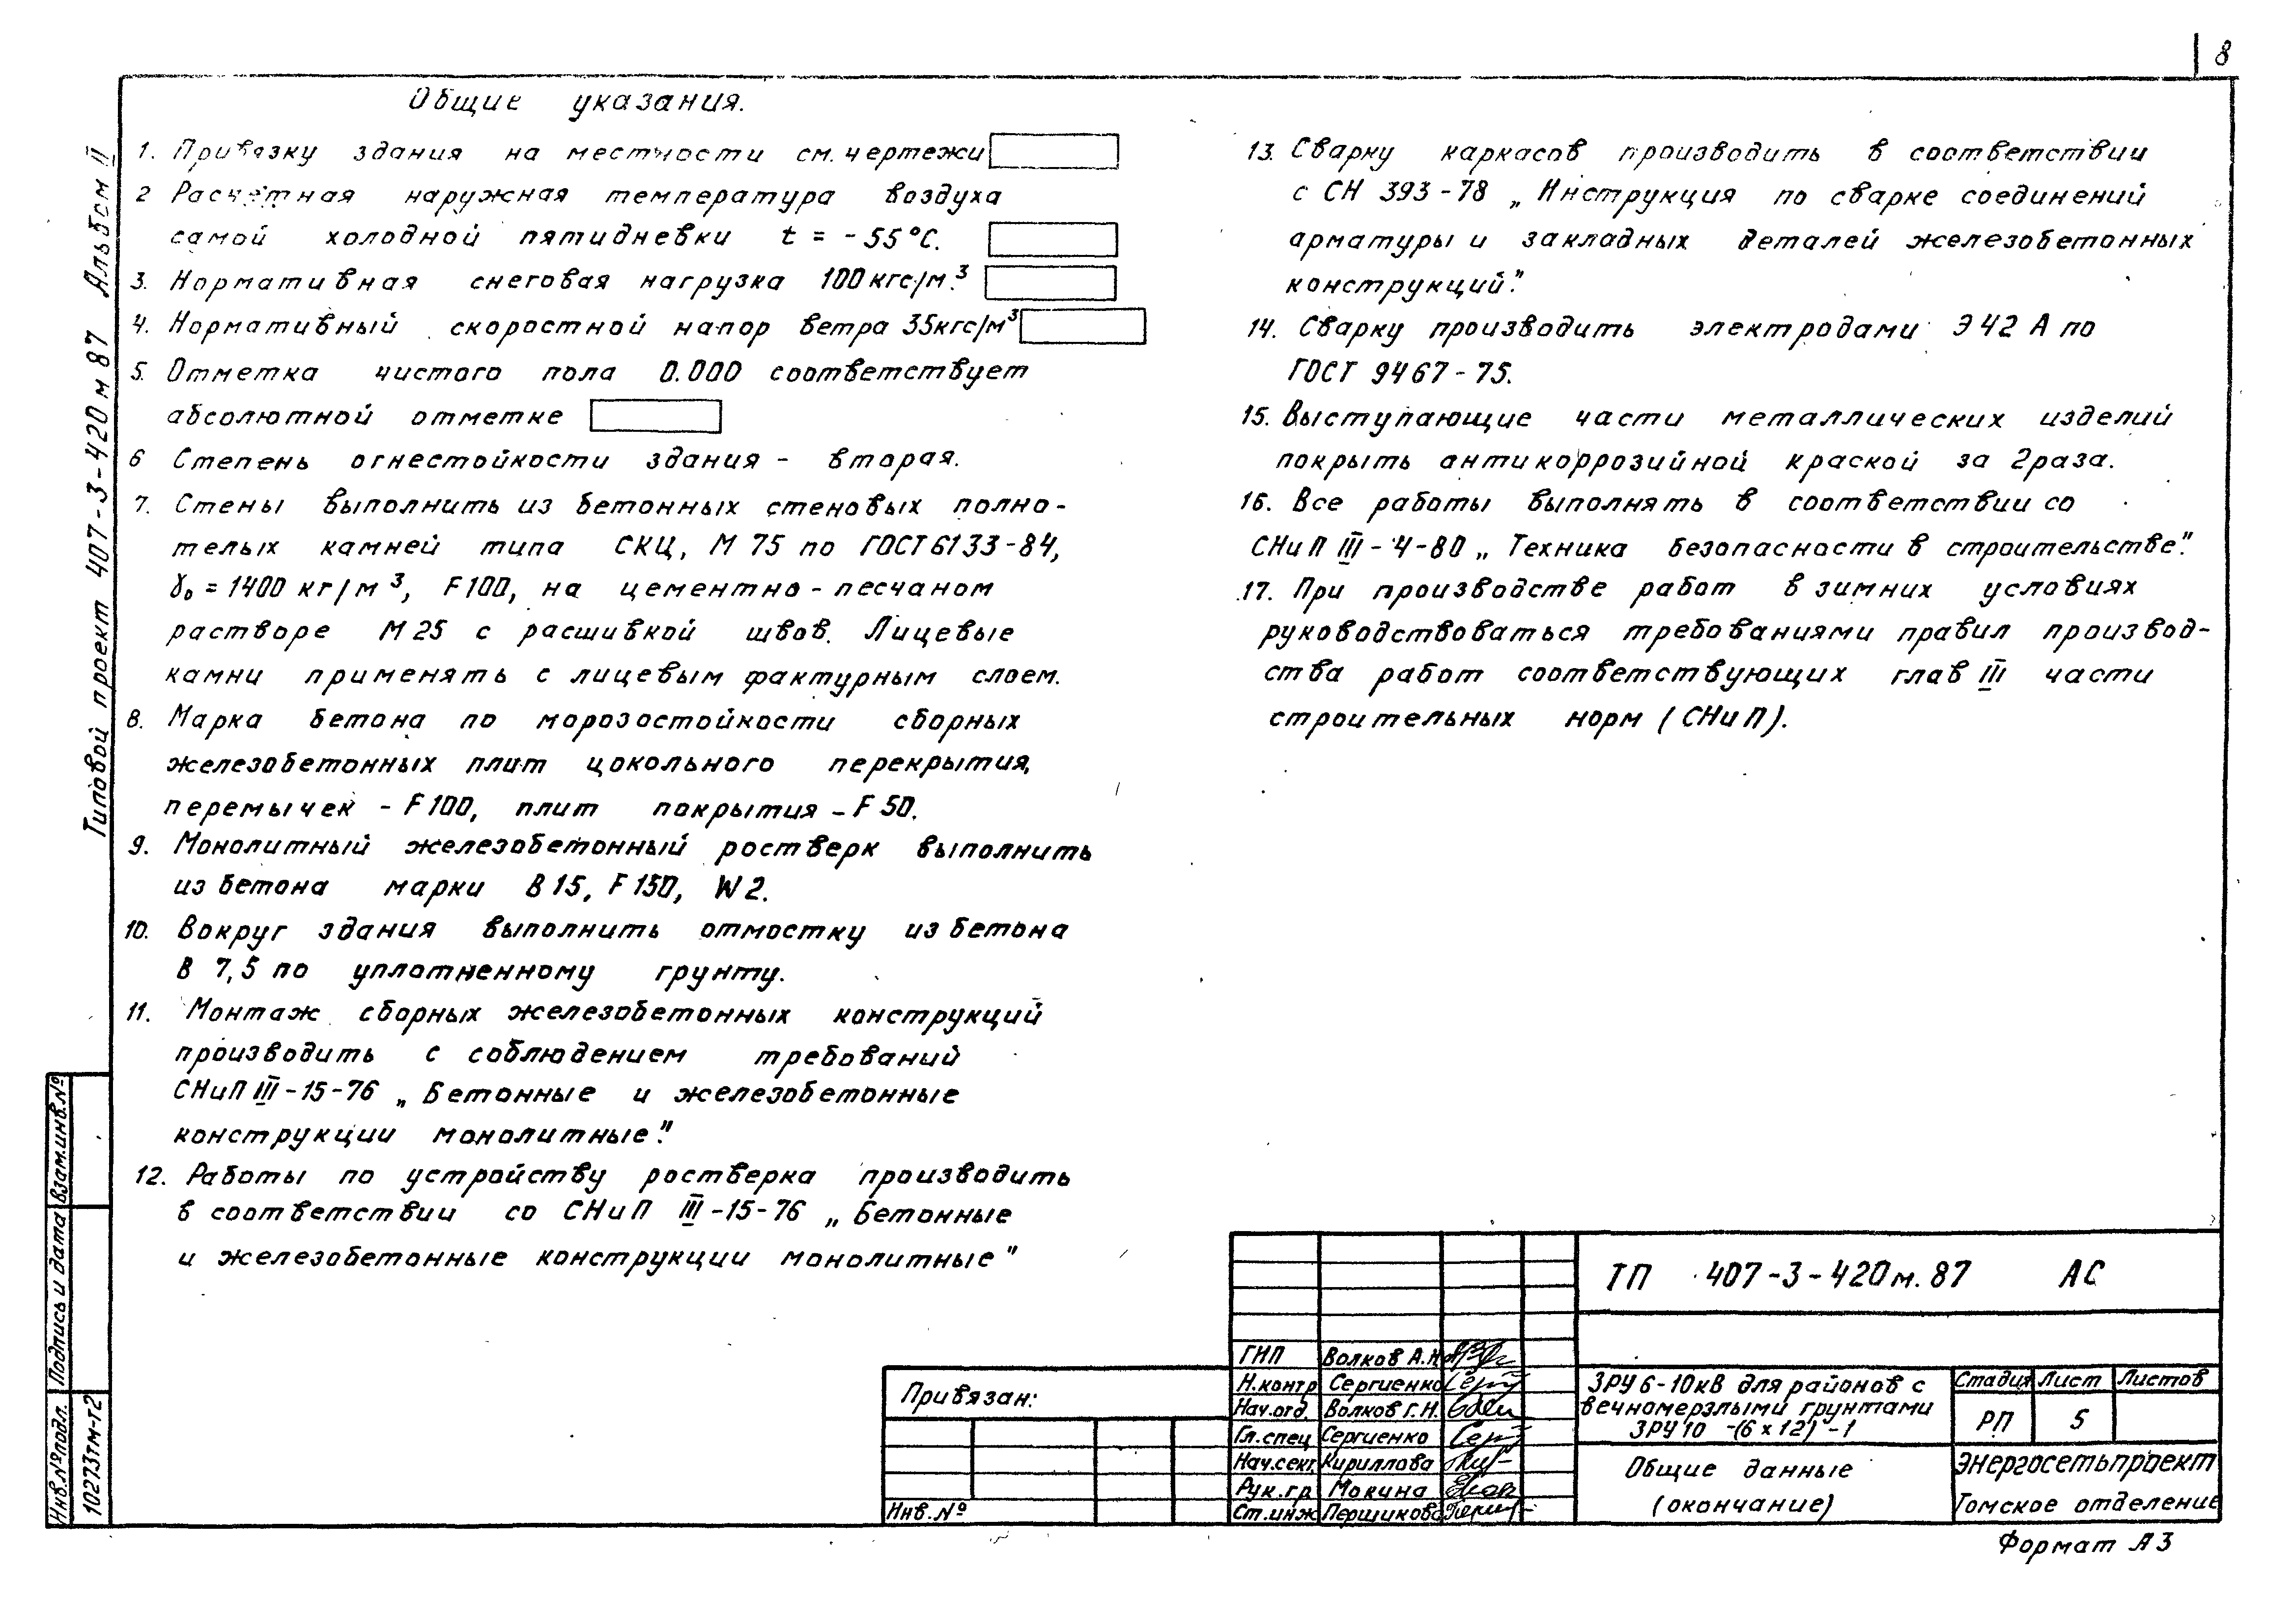 8
Общие указания.
1. Привязку здания на местности см. чертежи
2 Расчётная наружная температура воздуха
самой холодной пятидневки t = -55°C.
3. Нормативная снеговая нагрузка 100 кгс/м.³
4. Нормативный скоростной напор ветра 35кгс/м³
5. Отметка чистого пола 0.000 соответствует
абсолютной отметке
6 Степень огнестойкости здания - вторая.
7. Стены выполнить из бетонных стеновых полно-
телых камней типа СКЦ, М 75 по ГОСТ 6133-84,
γ₀ = 1400 кг/м³, F100, на цементно-песчаном
растворе М25 с расшивкой швов. Лицевые
камни применять с лицевым фактурным слоем.
8. Марка бетона по морозостойкости сборных
железобетонных плит цокольного перекрытия,
перемычек - F100, плит покрытия - F50.
9. Монолитный железобетонный ростверк выполнить
из бетона марки В15, F150, W2.
10. Вокруг здания выполнить отмостку из бетона
В 7,5 по уплотненному грунту.
11. Монтаж сборных железобетонных конструкций
производить с соблюдением требований
СНиП III-15-76 „Бетонные и железобетонные
конструкции монолитные".
12. Работы по устройству ростверка производить
в соответствии со СНиП III-15-76 „Бетонные
и железобетонные конструкции монолитные"
13. Сварку каркасов производить в соответствии
с СН 393-78 „Инструкция по сварке соединений
арматуры и закладных деталей железобетонных
конструкций".
14. Сварку производить электродами Э42 А по
ГОСТ 9467-75.
15. Выступающие части металлических изделий
покрыть антикоррозийной краской за 2 раза.
16. Все работы выполнять в соответствии со
СНиП III-4-80 „Техника безопасности в строительстве".
17. При производстве работ в зимних условиях
руководствоваться требованиями правил производ-
ства работ соответствующих глав III части
строительных норм (СНиП).
Типовой проект 407-3-420м 87 Альбом II
Взам.инв.№
Подпись и дата
Инв.№подл.
10273тм-т2
Привязан:
Инв.№
ТП 407-3-420м.87 АС
ГИП Волков А.Н.
Н.контр Сергиенко
Нач.отд. Волков Г.Н.
Гл.спец Сергиенко
Нач.сект. Кириллова
Рук.гр. Мокина
Ст.инж Першикова
ЗРУ 6-10кВ для районов с
вечномерзлыми грунтами
ЗРУ10 -(6×12)-1
Стадия Лист Листов
РП 5
Общие данные
(окончание)
Энергосетьпроект
Томское отделение
Формат А3